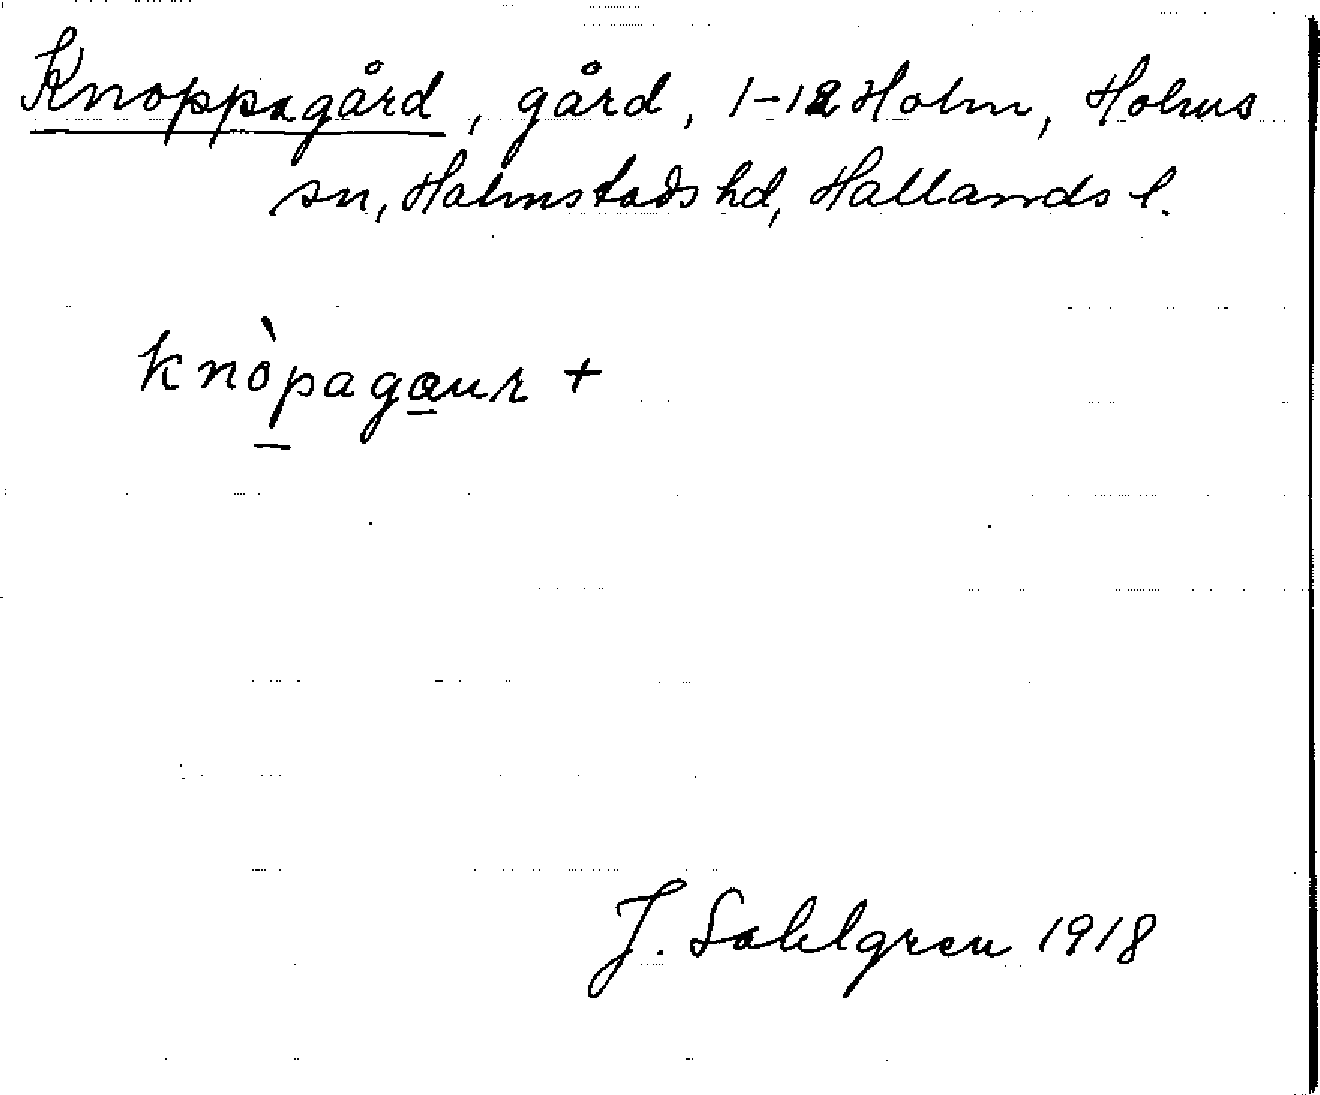 Knoppagård, gård, 1-12 Holm, Holms
sn, Halmstads hd, Hallands l.
knòpagaur +
J. Sahlgren 1918